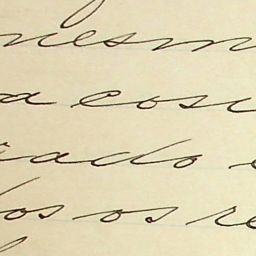 mesm
a cosi
rado e
dos os re